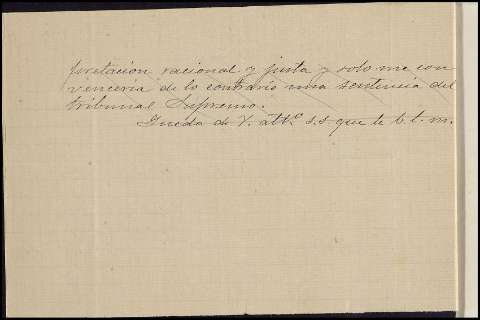 pretacion racional y justa y solo me con
venceria de lo contrario una sentencia del
tribunal Supremo.
Queda de V. att.º s.s que te b. t. m.